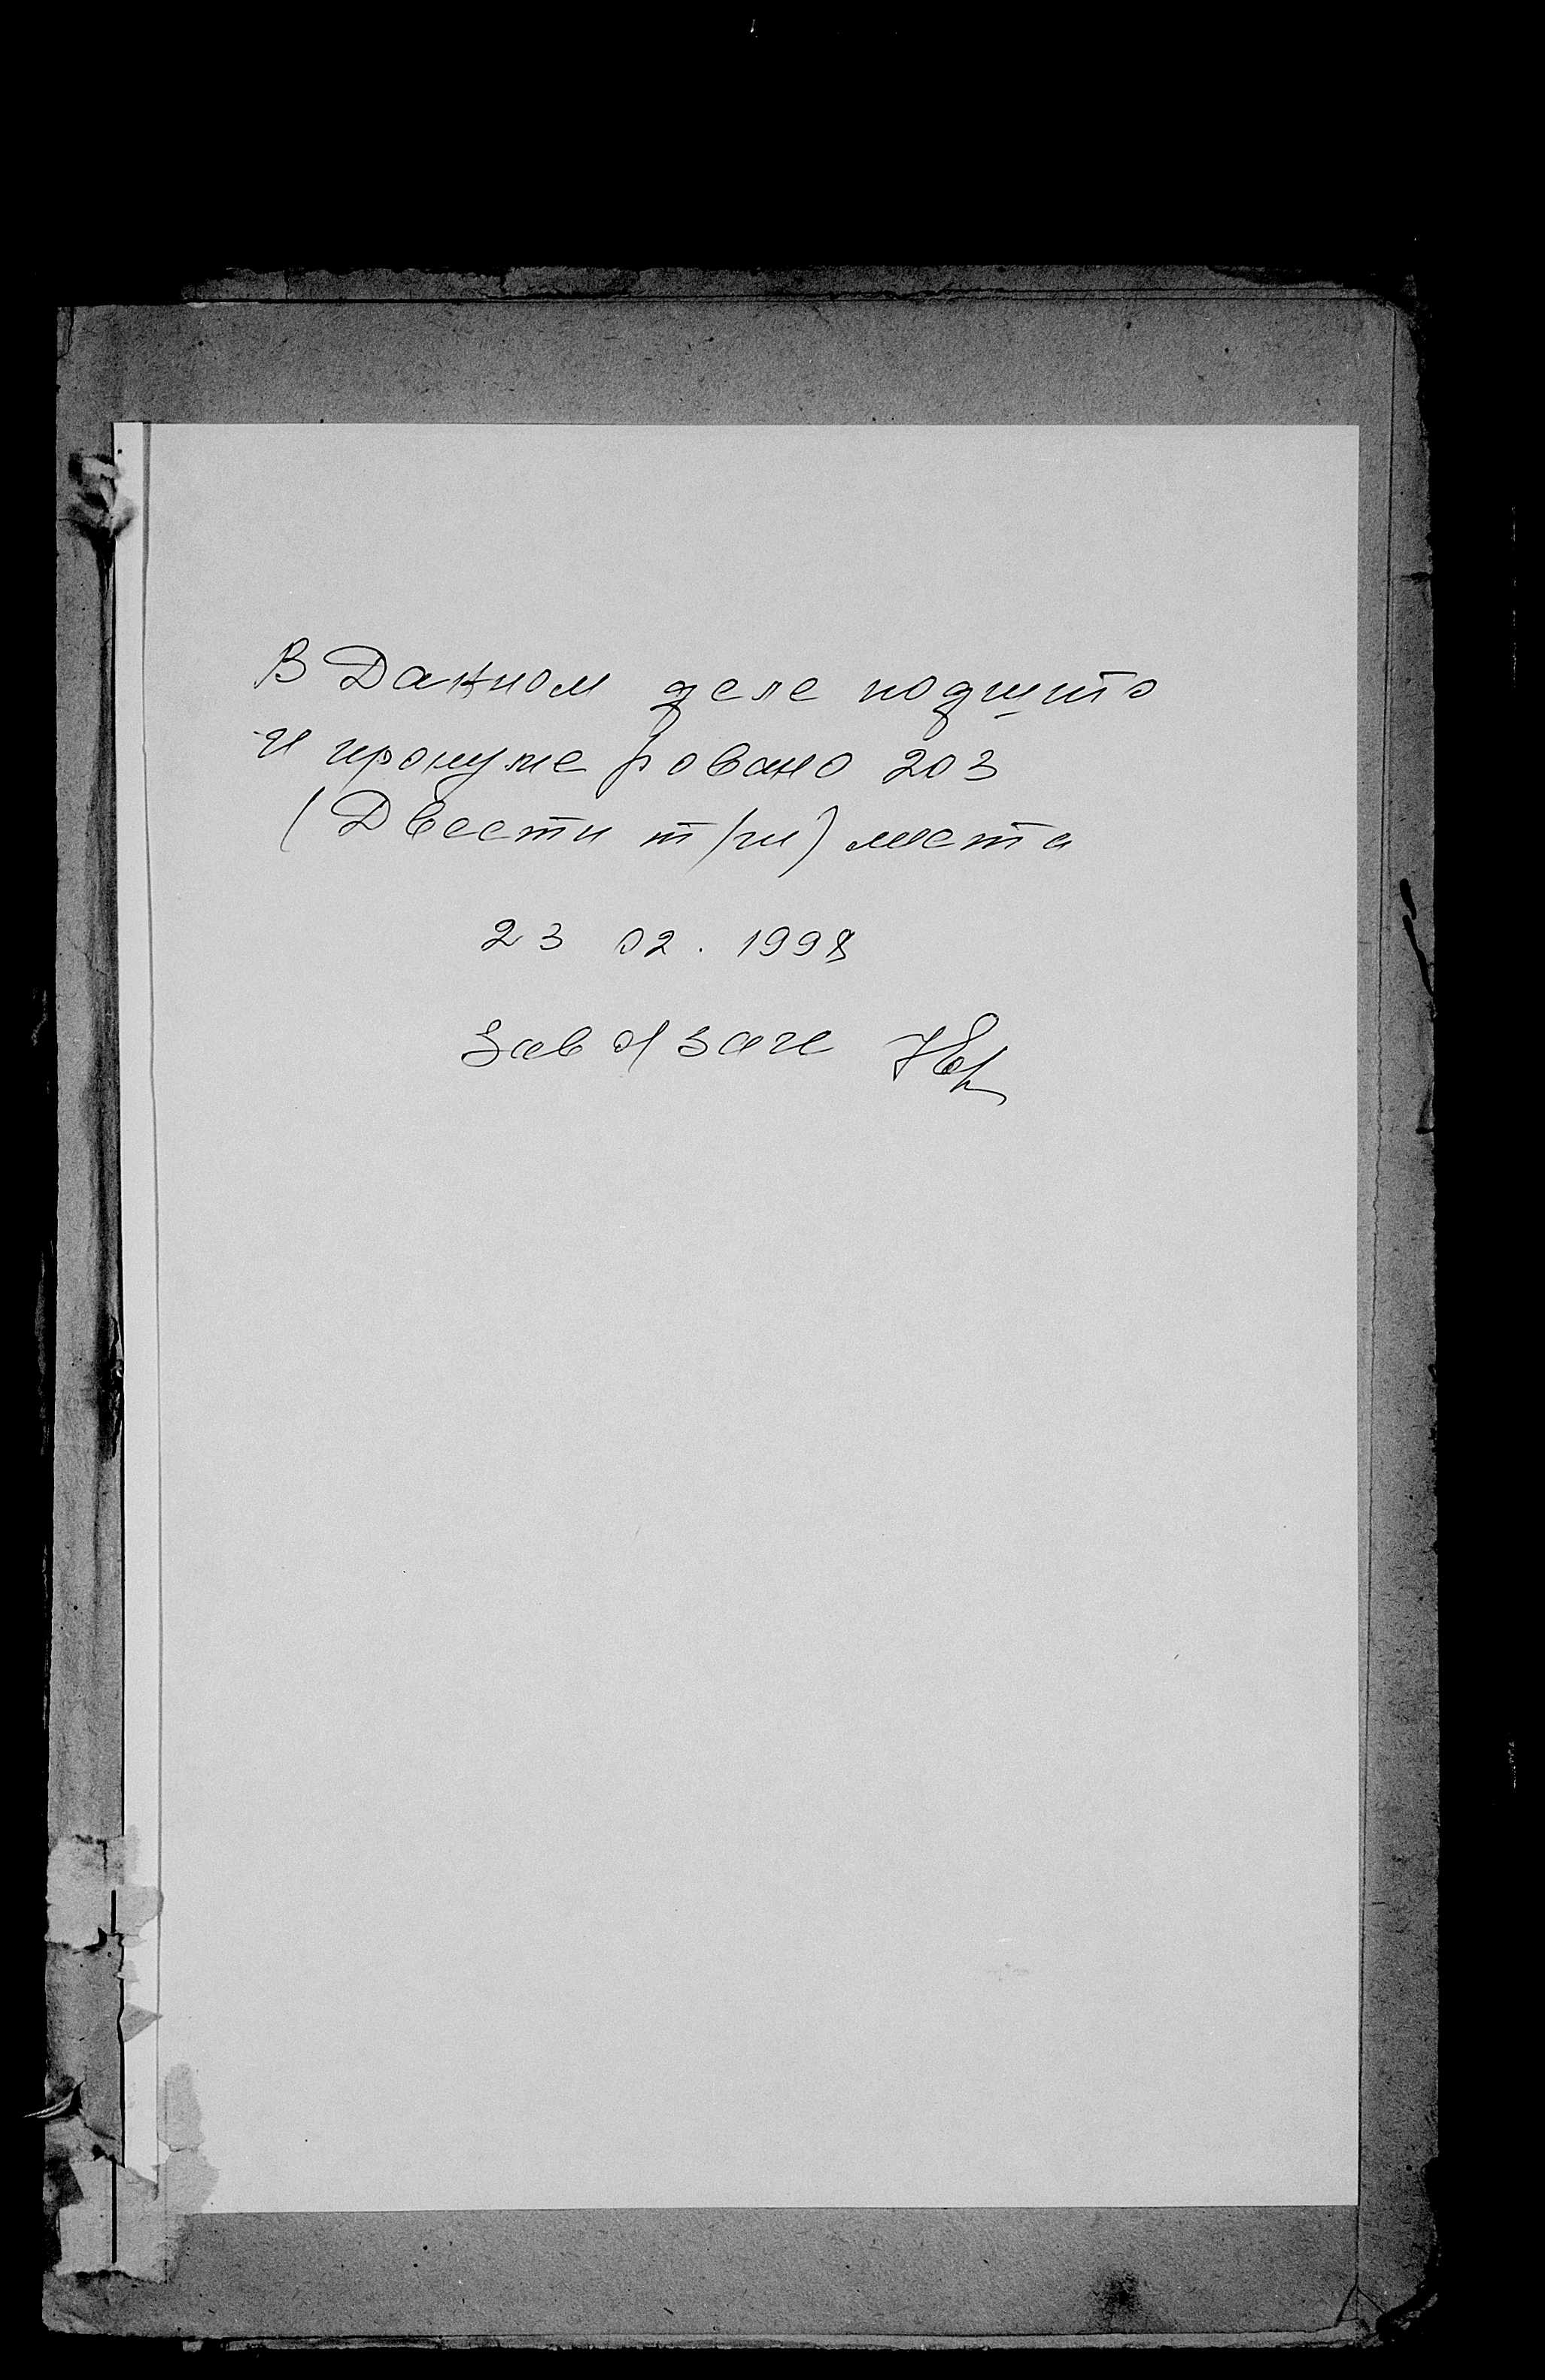 В Данном деле подшито
и пронумеровано 203
(Двести три) листа
23 02. 1998
Зав